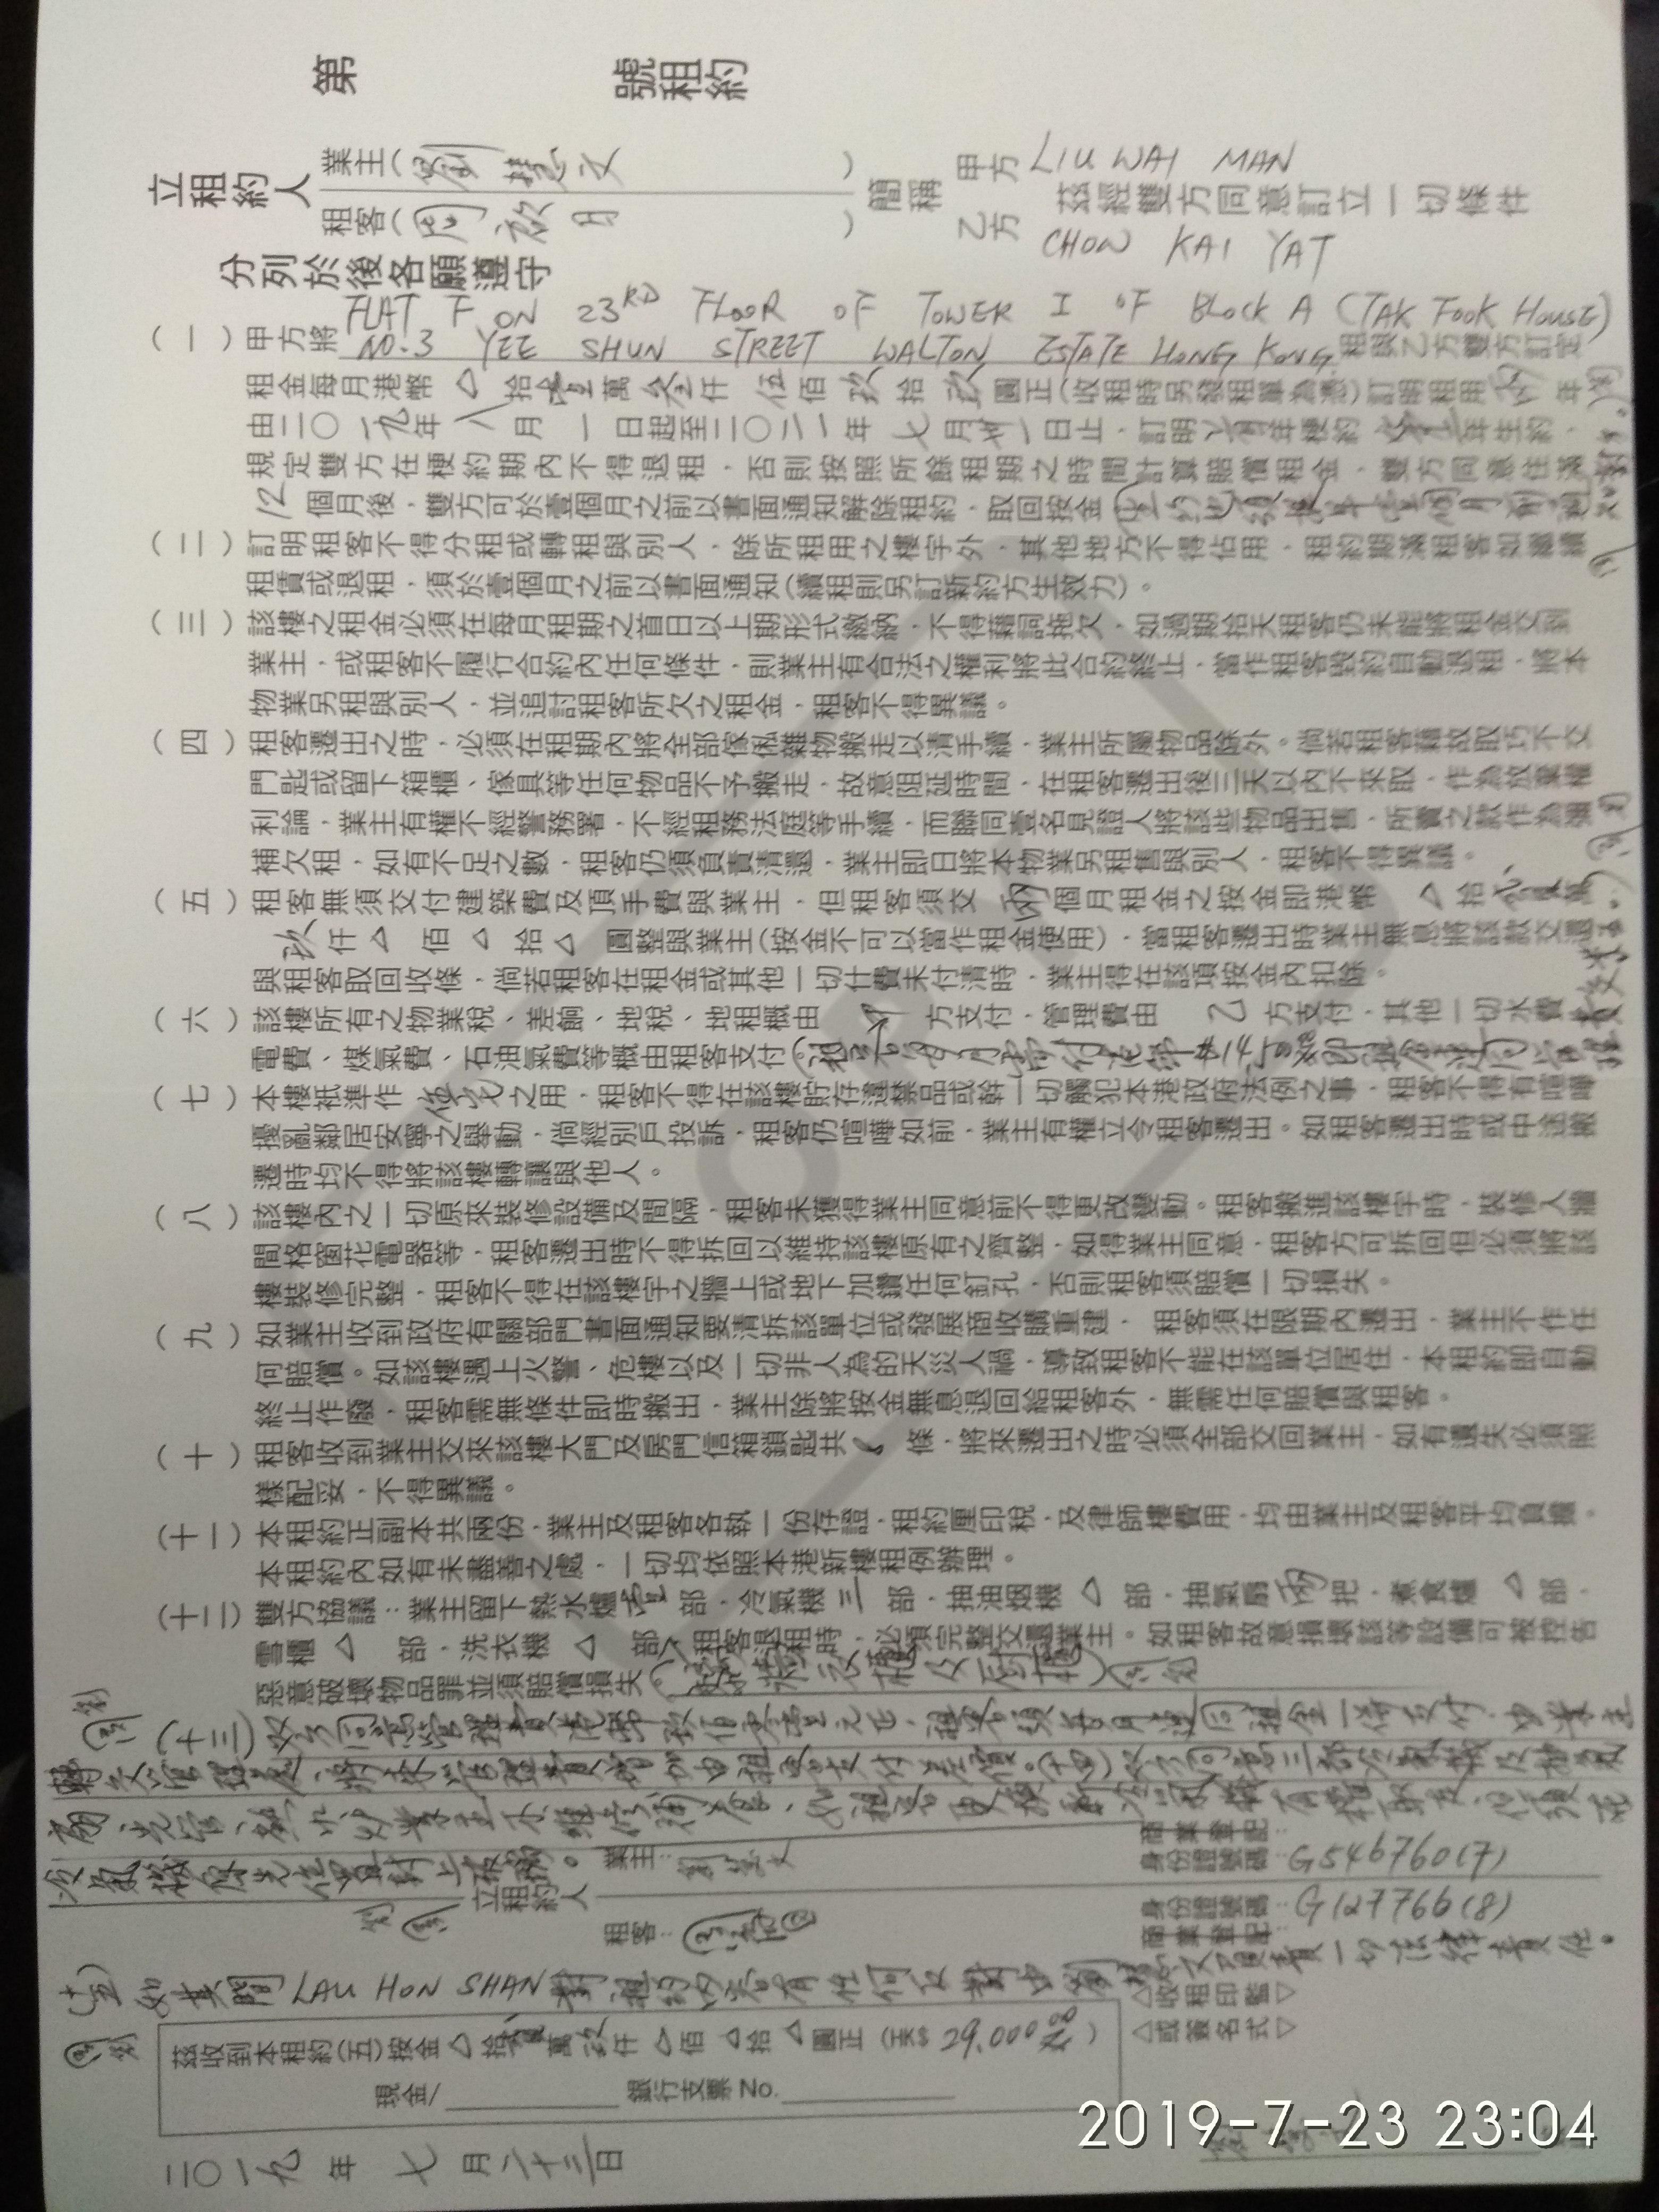 第 號租約
立租約人
業主(劉慧文)
租客(周啟日)
簡稱
甲方 LIU WAI MAN
乙方 CHOW KAI YAT
茲經雙方同意訂立一切條件
分列於後各願遵守
FLAT F ON 23RD FLOOR OF TOWER I OF BLOCK A (TAK FOOK HOUSE)
(一)甲方將 NO.3 YEE SHUN STREET WALTON ESTATE HONG KONG 租與乙方雙方訂定
租金每月港幣 △ 拾壹萬叁仟伍佰玖拾玖圓正(收租時另發租單為憑)訂明租用兩年
由二〇一九年八月一日起至二〇二一年七月卅一日止,訂明壹年梗約壹年生約,
規定雙方在梗約期內不得退租,否則按照所餘租期之時間計算賠償租金,雙方同意住滿
12個月後,雙方可於壹個月之前以書面通知解除租約,取回按金
(二)訂明租客不得分租或轉租與別人,除所租用之樓宇外,其他地方不得佔用,租約期滿租客如繼續
租賃或退租,須於壹個月之前以書面通知(續租則另訂新約方生效力)。
(三)該樓之租金必須在每月租期之首日以上期形式繳納,不得藉詞拖欠,如過期拾天租客仍未能將租金交到
業主,或租客不履行合約內任何條件,則業主有合法之權利將此合約終止,當作租客毀約自動退租,將本
物業另租與別人,並追討租客所欠之租金,租客不得異議。
(四)租客遷出之時,必須在租期內將全部傢俬雜物搬走以清手續,業主所屬物品除外。倘若租客藉故取巧不交
門匙或留下箱櫃、傢具等任何物品不予搬走,故意阻延時間,在租客遷出後三天以內不采取,作為放棄權
利論,業主有權不經警務署,不經租務法庭等手續,而聯同壹名見證人將該些物品出售,所賣之款作為彌
補欠租,如有不足之數,租客仍須負責清還,業主即日將本物業另租售與別人,租客不得異議。
(五)租客無須交付建築費及頂手費與業主,但租客須交兩個月租金之按金即港幣 △ 拾貳萬
玖仟 △ 佰 △ 拾 △ 圓整與業主(按金不可以當作租金使用),當租客遷出時業主無息將該款交還
與租客取回收條,倘若租客在租金或其他一切什費未付清時,業主得在該項按金內扣除。
(六)該樓所有之物業稅、差餉、地稅、地租概由 甲 方支付,管理費由 乙 方支付,其他一切水費
電費、煤氣費、石油氣費等概由租客支付
(七)本樓祇準作住宅之用,租客不得在該樓貯存違禁品或幹一切觸犯本港政府法例之事,租客不得有喧嘩
擾亂鄰居安寧之舉動,倘經別戶投訴,租客仍喧嘩如前,業主有權立令租客遷出。如租客遷出時或中途搬
遷時均不得將該樓轉讓與他人。
(八)該樓內之一切原來裝修設備及間隔,租客未獲得業主同意前不得更改變動。租客搬進該樓宇時,裝修入牆
間格窗花電器等,租客遷出時不得拆回以維持該樓原有之齊整,如得業主同意,租客方可拆回但必須將該
樓裝修完整,租客不得在該樓宇之牆上或地下加鑽任何釘孔,否則租客須賠償一切損失。
(九)如業主收到政府有關部門書面通知要清拆該單位或發展商收購重建,租客須在限期內遷出,業主不作任
何賠償。如該樓遇上火警、危樓以及一切非人為的天災人禍,導致租客不能在該單位居住,本租約即自動
終止作廢,租客需無條件即時搬出,業主除將按金無息退回給租客外,無需任何賠償與租客。
(十)租客收到業主交來該樓大門及房門信箱鎖匙共 6 條,將來遷出之時必須全部交回業主,如有遺失必須照
樣配妥,不得異議。
(十一)本租約正副本共兩份,業主及租客各執一份存證,租約厘印稅,及律師樓費用,均由業主及租客平均負擔。
本租約內如有未盡善之處,一切均依照本港新樓租例辦理。
(十二)雙方協議:業主留下熱水爐壹部,冷氣機三部,抽油烟機 △ 部,抽氣扇兩把,煮食爐 △ 部,
雪櫃 △ 部,洗衣機 △ 部,租客退租時,必須完整交還業主。如租客故意損壞該等設備可被控告
惡意破壞物品罪並須賠償損失
(十三)雙方同意管理費,租客須每月連同租金一併支付,由業主
轉交管理處,將來管理費增加由租客支付差價。(十四)雙方同意三部冷氣機及抽氣
立租約人
業主:劉慧文
租客:
商業登記
身份證號碼:G546760(7)
身份證號碼:G127766(8)
商業登記
(十五)如業關 LAU HON SHAN 對租約內容有任何反對由劉慧文負責一切法律責任。
茲收到本租約(五)按金 △ 拾貳萬玖仟 △ 佰 △ 拾 △ 圓正 (HK$ 29,000.00)
現金/ 銀行支票No.
△收租印鑑▽
△或簽名式▽
二〇一九年七月二十三日
COPY
2019-7-23 23:04